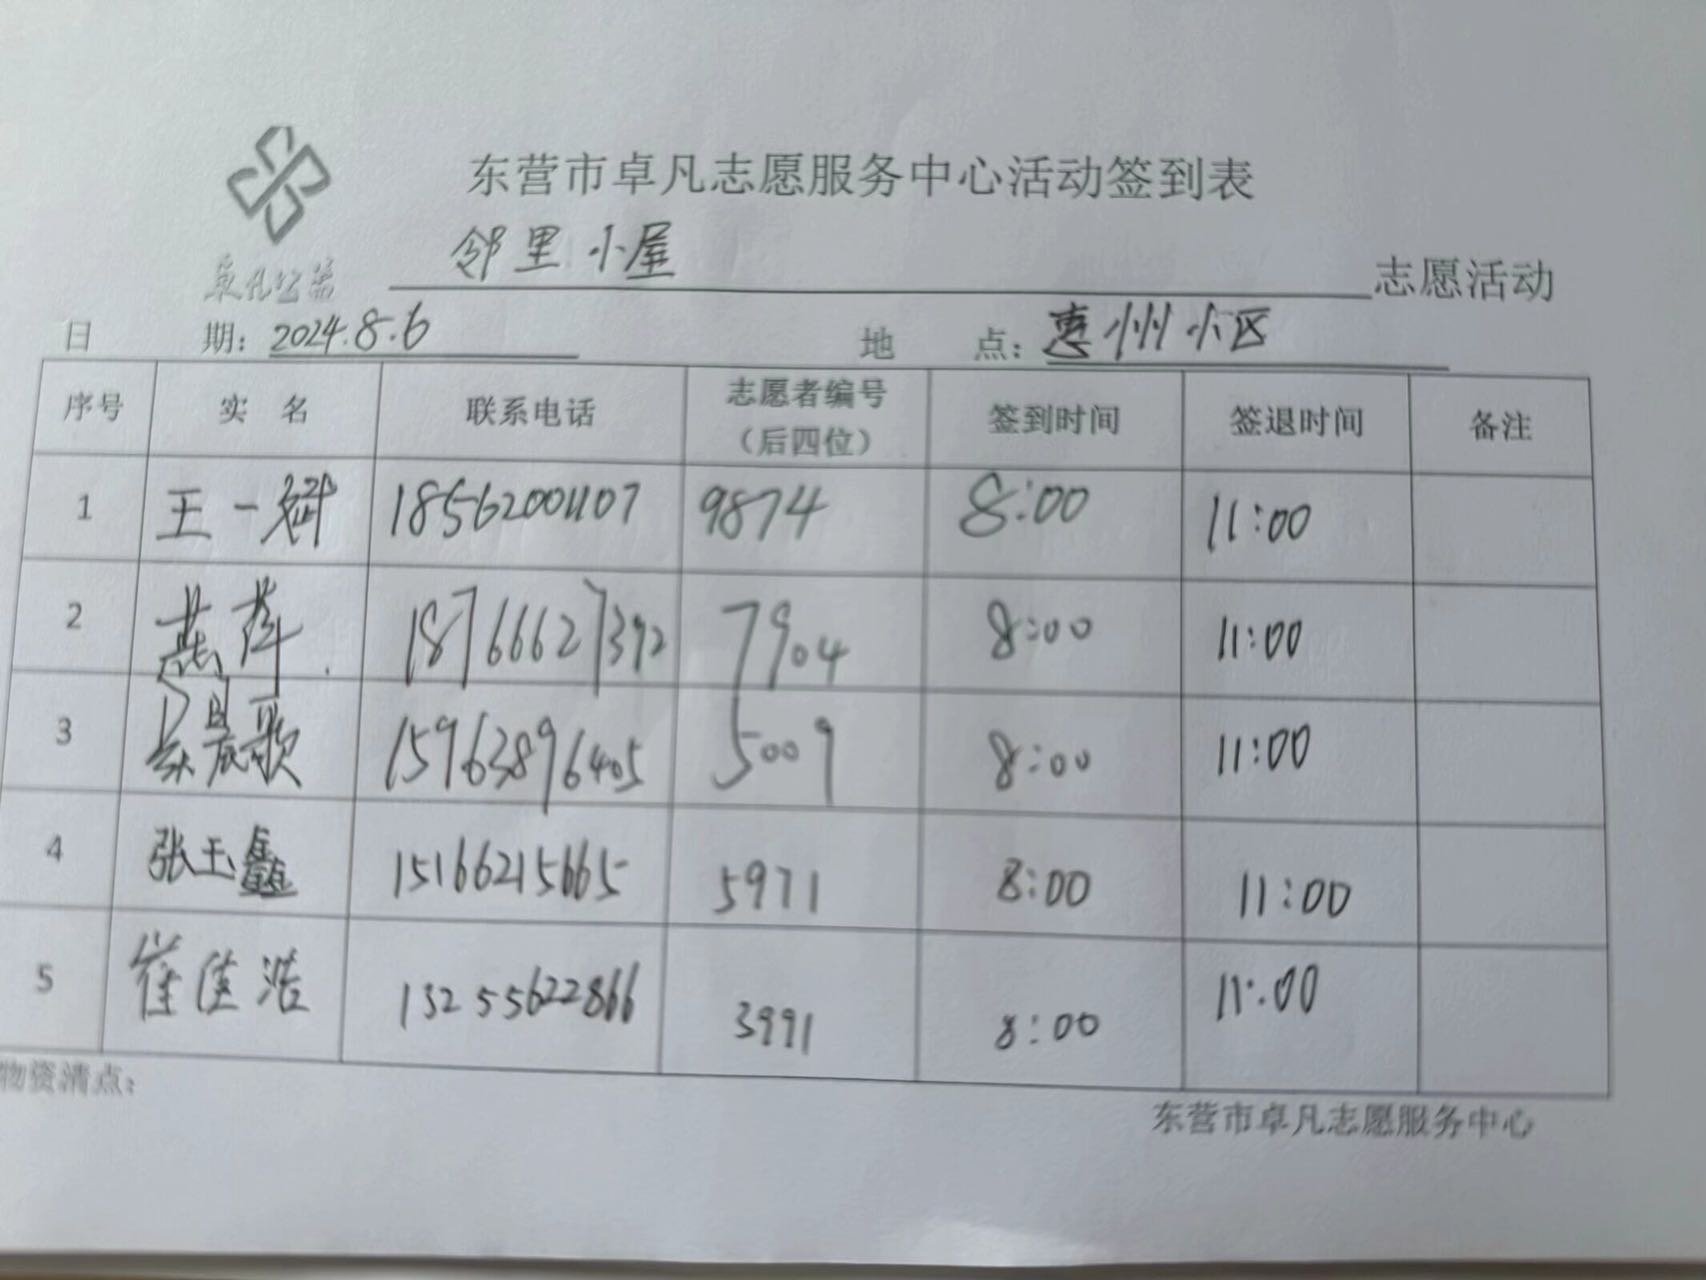 东营市卓凡志愿服务中心活动签到表
卓凡公益
邻里小屋 志愿活动
日 期：2024.8.6 地 点：惠州小区
序号 实 名 联系电话 志愿者编号（后四位） 签到时间 签退时间 备注
1 王一斌 18562001107 9874 8:00 11:00
2 燕萍 18766627392 7904 8:00 11:00
3 晨歌 15963896405 5009 8:00 11:00
4 张玉鑫 15166215665 5971 8:00 11:00
5 崔佳浩 13255622866 3991 8:00 11:00
物资清点：
东营市卓凡志愿服务中心